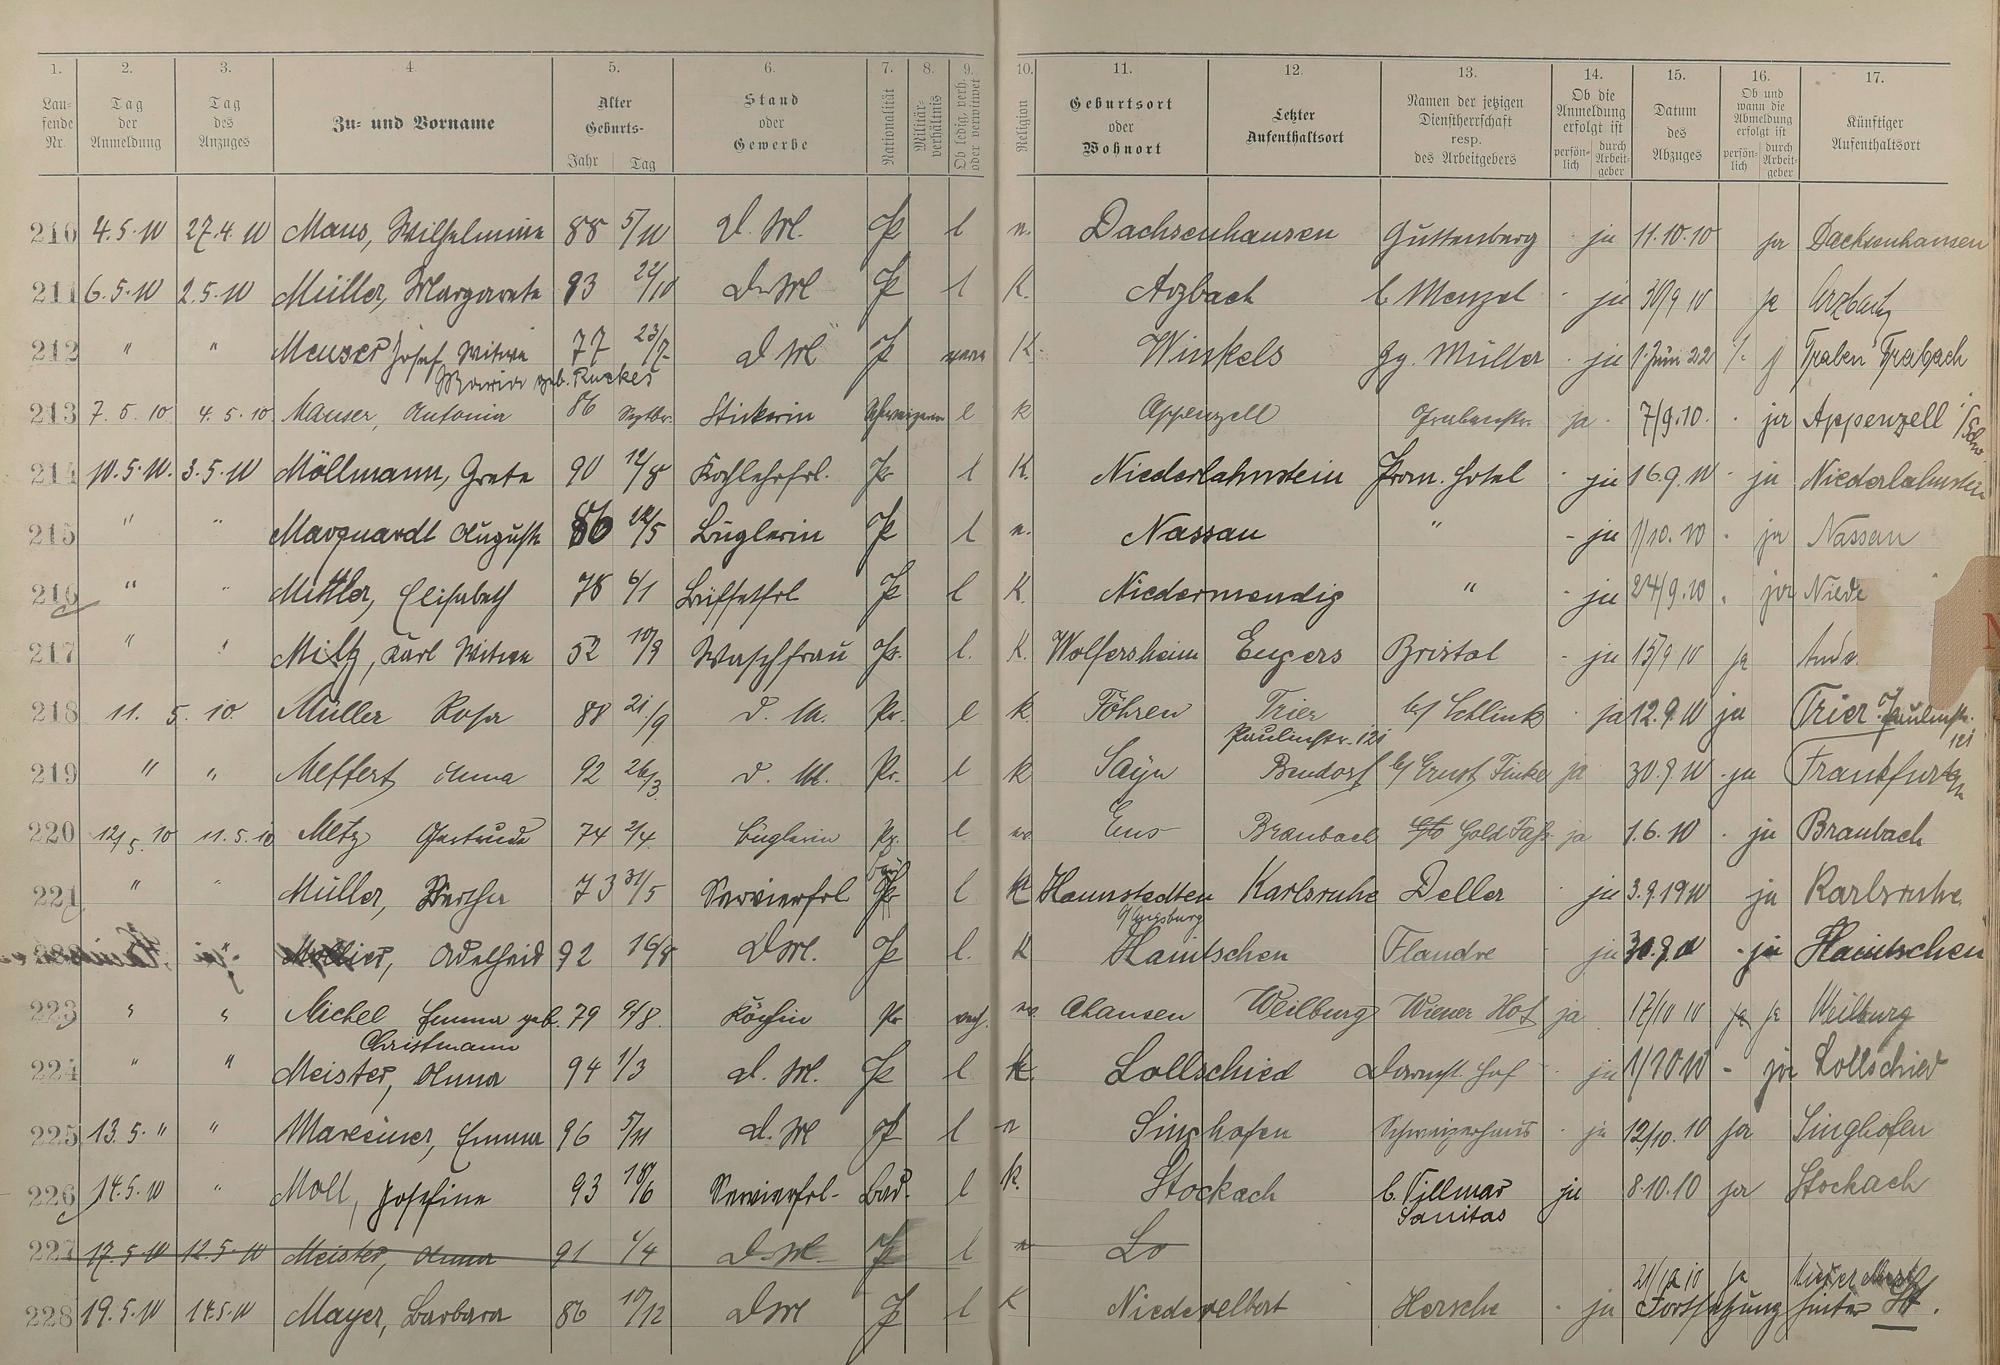 1. 2. 3. 4. 5. 6. 7. 8. 9. 10. 11. 12. 13. 14. 15. 16. 17.
Laufende Nr. Tag der Anmeldung Tag des Anzuges Zu- und Vorname Alter Geburts- Jahr Tag Stand oder Gewerbe Nationalität Militärverhältnis Ob ledig, verh. oder verwitwet Religion Geburtsort oder Wohnort Letzter Aufenthaltsort Namen der jetzigen Dienstherrschaft resp. des Arbeitgebers Ob die Anmeldung erfolgt ist persönlich durch Arbeitgeber Datum des Abzuges Ob und wann die Abmeldung erfolgt ist persönlich durch Arbeitgeber Künftiger Aufenthaltsort
210 4.5.10 27.4.10 Maus, Wilhelmine 88 5/11 d. M. Pr l Dachsenhausen Guttenberg ja 11.10.10 ja Dachsenhausen
211 6.5.10 2.5.10 Müller, Margareta 93 22/10 d. M Pr l K. Arzbach b Menzel ja 30/9 10 ja Arzbach
212 " " Meuser Josef Witwe 77 23/7 d M Pr K. Winkels Gg. Müller ja 1. Juni 22 Traben Trabach
Maria geb. Ruckes
213 7. 5. 10 4. 5. 10. Mauser, Antonia 86 Septbr. Stickerin l k Appenzell ja 7/9.10. ja Appenzell
214 10.5.10. 3.5.10 Möllmann, Grete 90 12/8 Kochlehrfrl. Pr l K. Niederlahnstein Prom. Hotel ja 16.9.10 ja Niederlahnstein
215 " " Marquardt Auguste 86 12/5 Büglerin Pr l Nassau " ja 1/10.10 ja Nassau
216 " " Mittler, Elisabeth 78 6/1 Büffetfrl Pr l K. Niedermendig " ja 24/9.10 ja Niede
217 " " Miltz, Karl Witwe 52 10/9 Waschfrau Pr. l. K. Wolfersheim Engers Bristol ja 15/9 10 ja
218 11. 5. 10 Müller Rosa 88 21/9 d. M. Pr. l k Föhren Trier b/ Schlink ja 12.9.10 ja Trier Paulinstr. 121
Paulinstr. 121
219 " " Meffert Anna 92 26/3 d. M. Pr. l k Sayn Bendorf b/ Ernst Finke ja 30.9.10 ja Frankfurt
220 12/5.10 11.5.10 Metz Gertrude 74 2/4 Büglerin Pr. l Ems Braubach Gold Faß ja 1.6.10 ja Braubach
221 " " Müller, Bertha 73 31/5 Servierfrl l Haunstedten Karlsruhe Deller ja 3.9.1910 ja Karlsruhe
b/ Augsburg
" Adelheid 92 16/8 D M. Pr l. K Haintschen Flandre ja 30.9.10 ja Haintschen
223 " " Michel Emma geb. 79 9/8. Köchin Pr verh. Ahausen Weilburg Wiener Hof ja 17/10 10 ja Weilburg
Christmann
224 " " Meister, Anna 94 1/3 d. M. Pr l k. Lollschied Darmst. Hof ja 1/10 10 ja Lollschied
225 13. 5. " " Emma 96 5/11 d. M Pr l Singhofen Schweizerhaus ja 12/10.10 ja Singhofen
226 14.5.10 " Moll, Josefine 93 18/6 Servierfrl. Bad. l k. Stockach b. Villmar ja 8.10.10 ja Stockach
Sanitas
227 17.5.10 12.5.10 Meister, Anna 91 1/4 D. M. Pr l Lo
21/12 10 ja
228 19.5.10 17.5.10 Mayer, Barbara 86 10/12 D M Pr l K Niederelbert Hersche ja Fortsetzung hinter St.